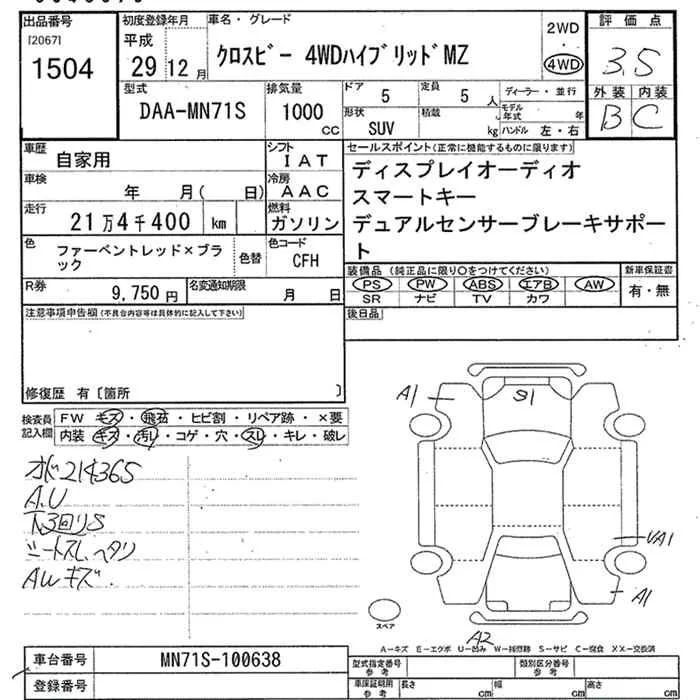 出品番号
[2067]
1504
初度登録年月
平成
29 12 月
車名・グレード
クロスビー 4WDハイブリッドMZ
2WD
・
4WD
評価点
3.5
外装 内装
B C
型式
DAA-MN71S
排気量
1000
cc
ドア
5
定員
5 人
形状
SUV
積載
kg
ディーラー・並行
モデル年式 年
ハンドル 左・右
車歴
自家用
シフト
IAT
車検
年 月( 日)
冷房
AAC
走行
21万4千400 km
燃料
ガソリン
色
ファーベントレッド×ブラック
色替
色コード
CFH
R券
9,750 円
名変通知期限
月 日
セールスポイント(正常に機能するものに限ります)
ディスプレイオーディオ
スマートキー
デュアルセンサーブレーキサポート
装備品(純正品に限り○をつけてください)
PS PW ABS エアB AW
SR ナビ TV カワ
新車保証書
有・無
後日品
注意事項申告欄(不具合内容等は具体的に記入して下さい)
修復歴 有〔箇所 〕
検査員記入欄
FW キズ・飛石・ヒビ割・リペア跡・×要
内装 キズ・汚れ・コゲ・穴・スレ・キレ・破レ
オド214365
A.U
下3回りS
シートスレ ヘタリ
AWキズ
A1
S1
UA1
A1
A2
スペア
A-キズ E-エクボ U-凹み W-補修跡 S-サビ C-腐食 XX-交換済
車台番号
MN71S-100638
登録番号
型式指定番号
参考
類別区分番号
参考
車保証明用
参考
長さ cm
幅 cm
高さ cm